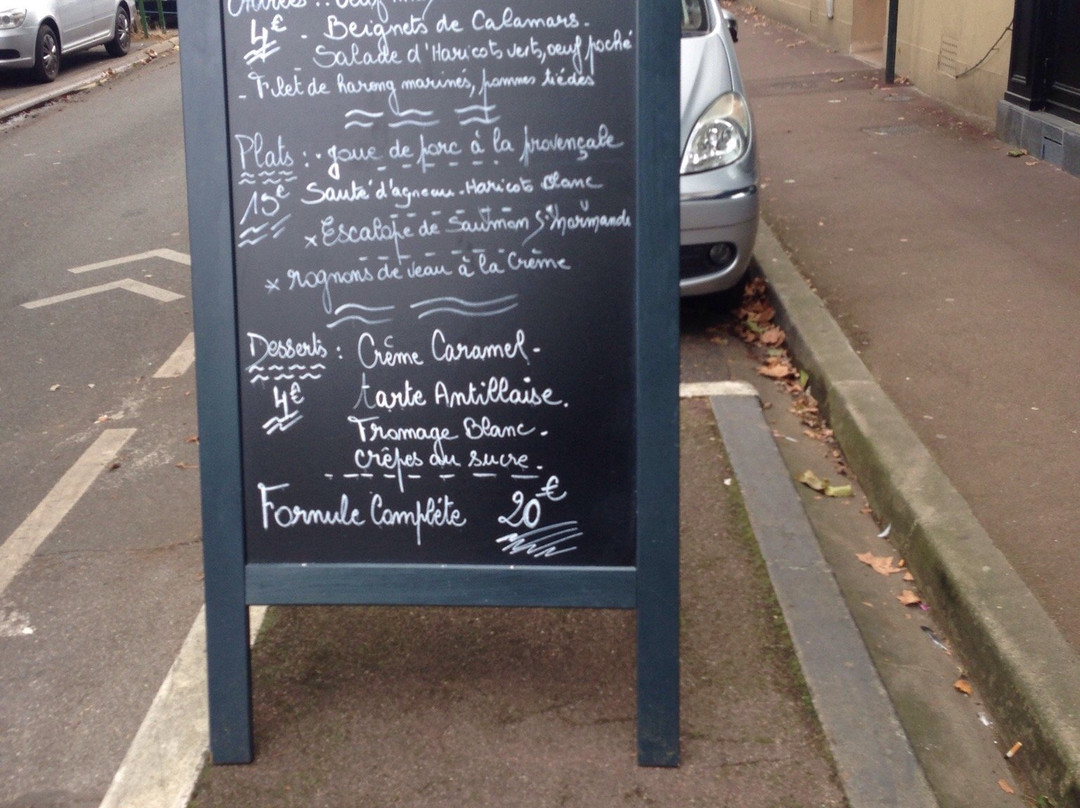 Entrées : . Oeuf
4€ - Beignets de Calamars -
Salade d'Haricots verts, oeuf poché
- Filet de hareng marinés, pommes tiédes
Plats : . joue de porc à la provençale
15€ Sauté d'agneau - Haricots Blanc
x Escalope de Saumon Normande
x rognons de veau à la Crème
Desserts : Crème Caramel -
4€ tarte Antillaise.
Fromage Blanc -
crêpes au sucre -
Formule Complète 20€